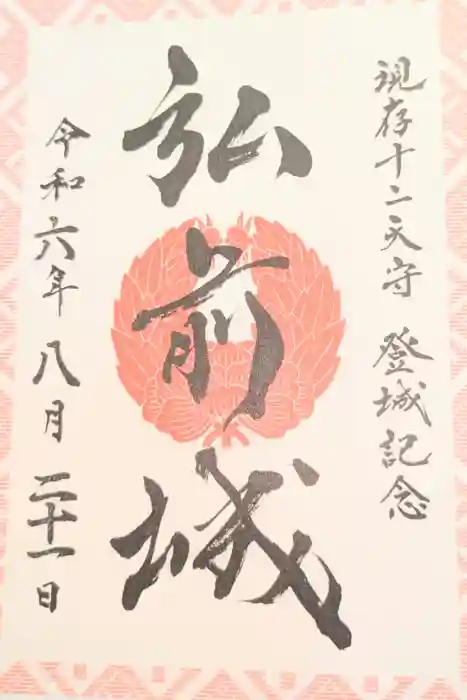 現存十二天守 登城記念
弘前城
令和六年八月二十一日